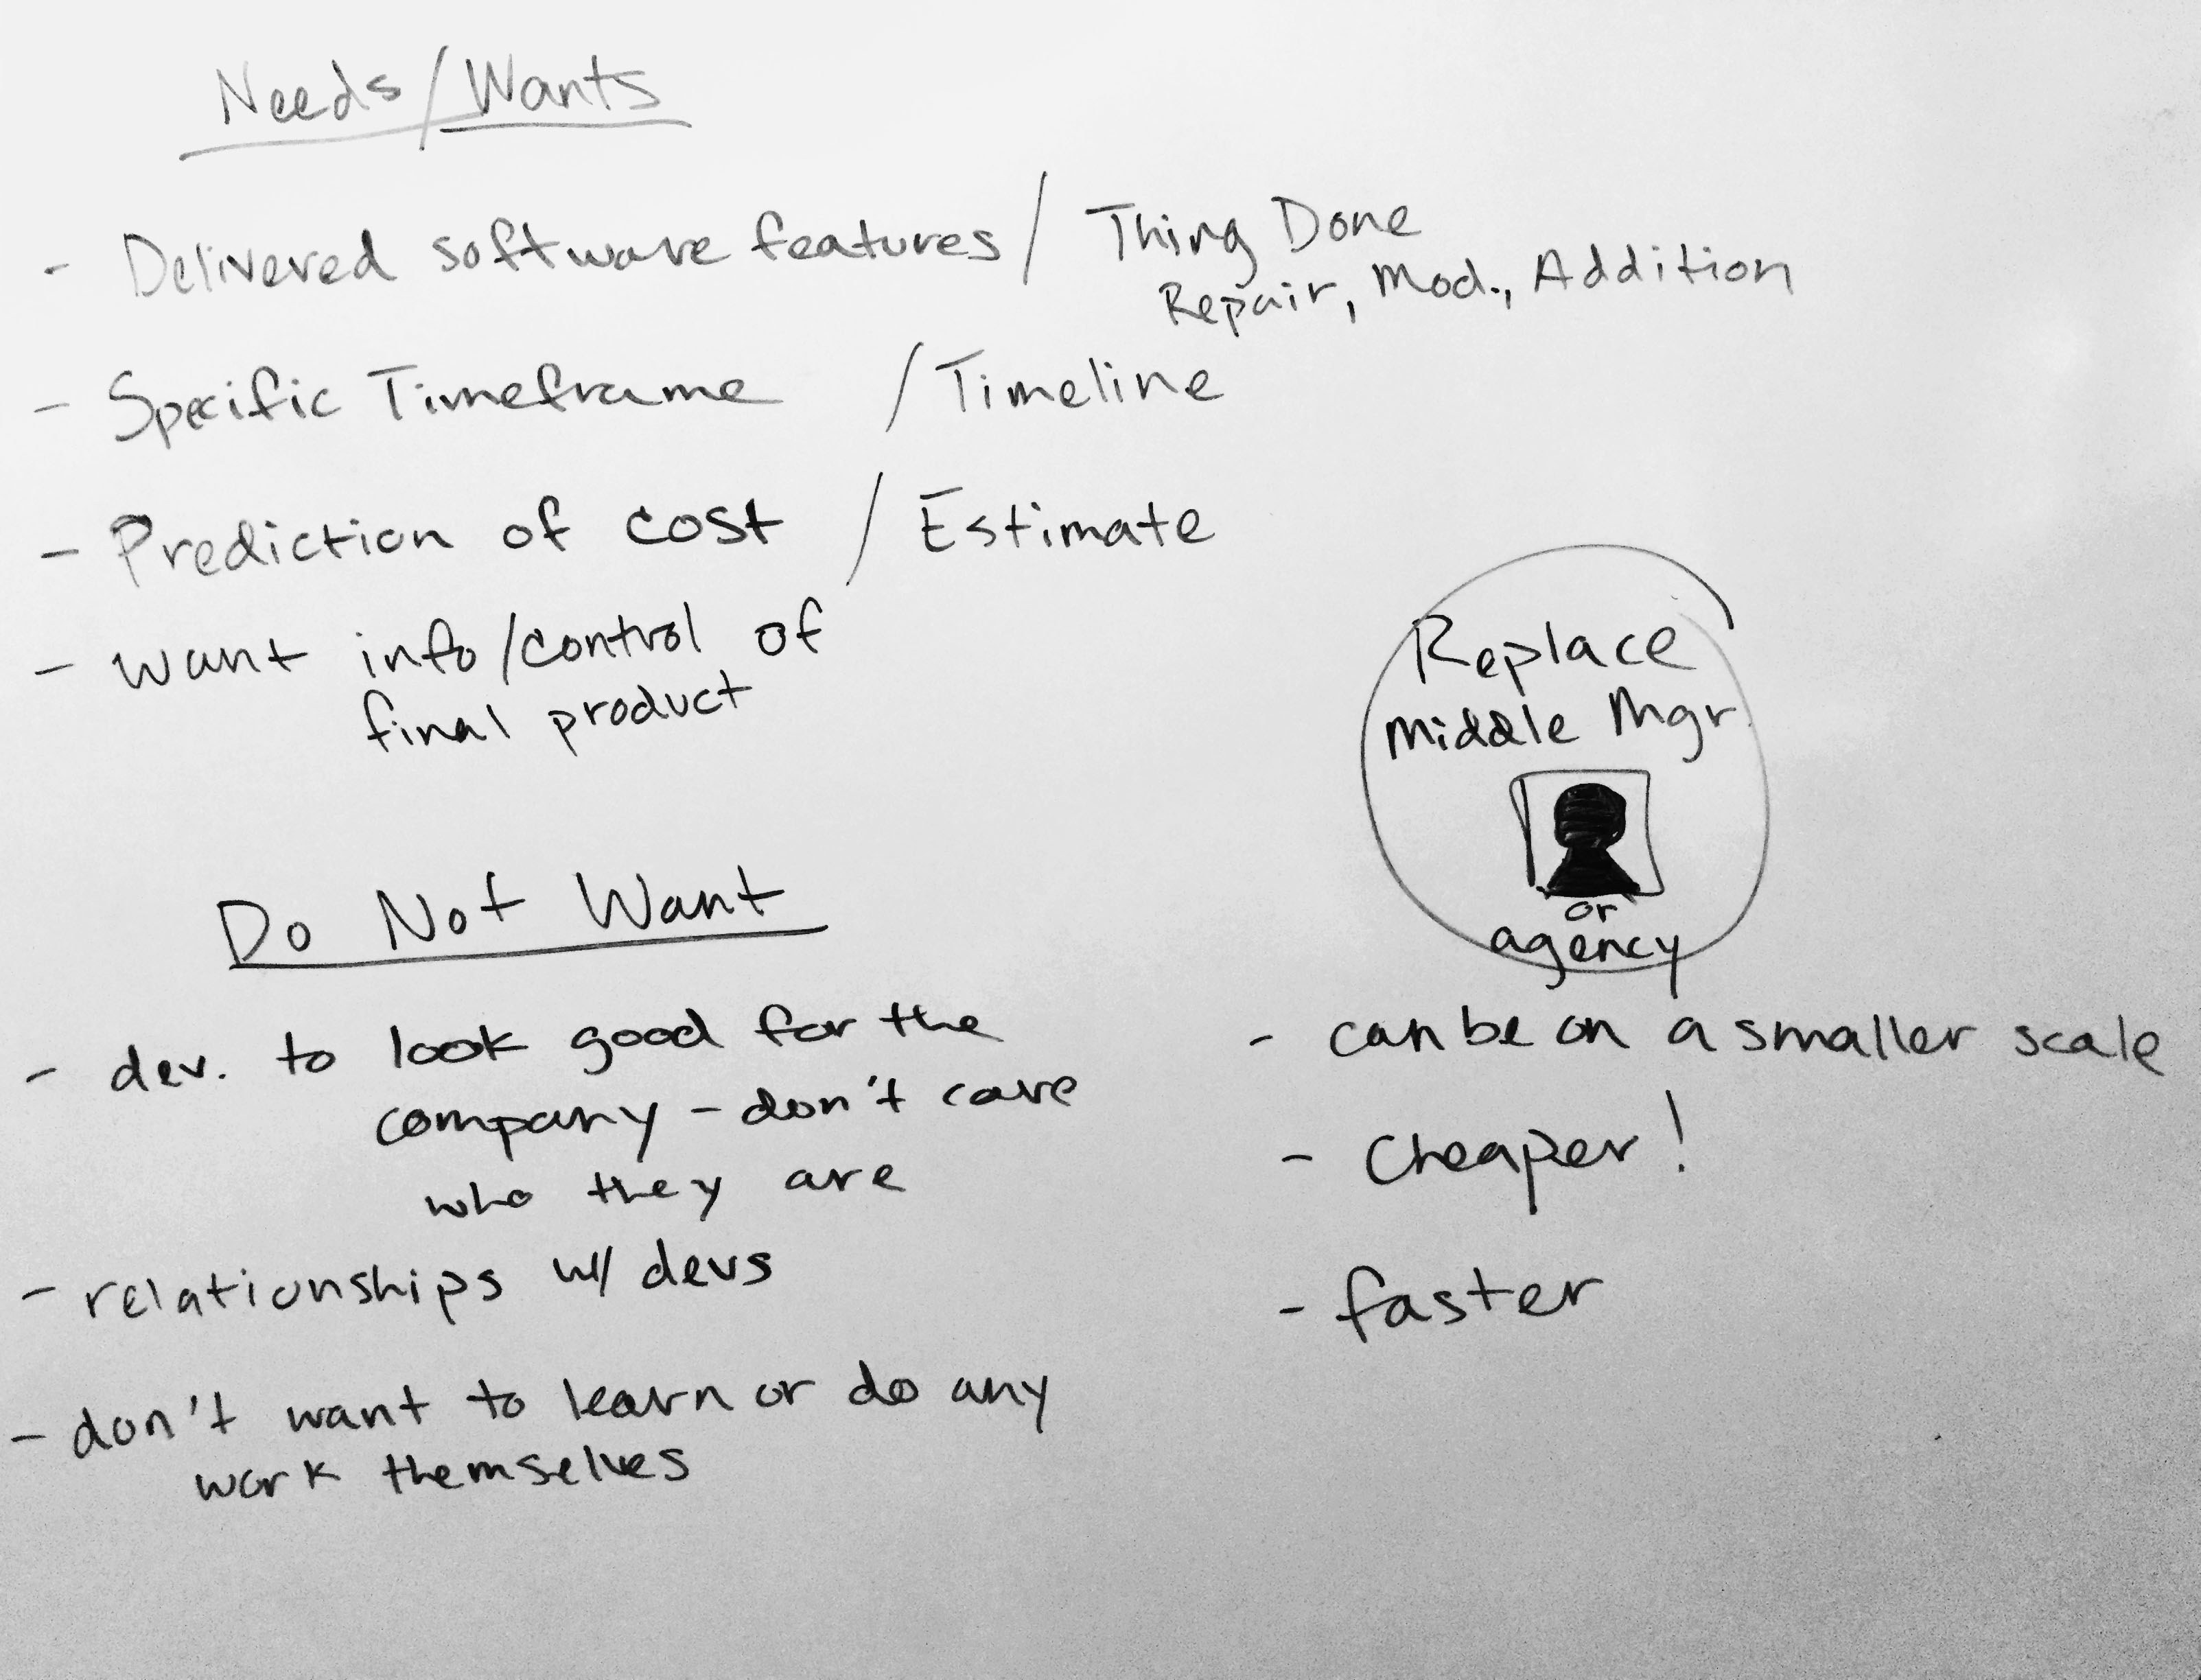 Needs/Wants
- Delivered software features / Thing Done
Repair, Mod., Addition
- Specific Timeframe / Timeline
- Prediction of cost / Estimate
- want info/control of
final product
Do Not Want
- dev. to look good for the
company - don't care
who they are
- relationships w/ devs
- don't want to learn or do any
work themselves
Replace
Middle Mgr.
or
agency
- can be on a smaller scale
- Cheaper!
- faster